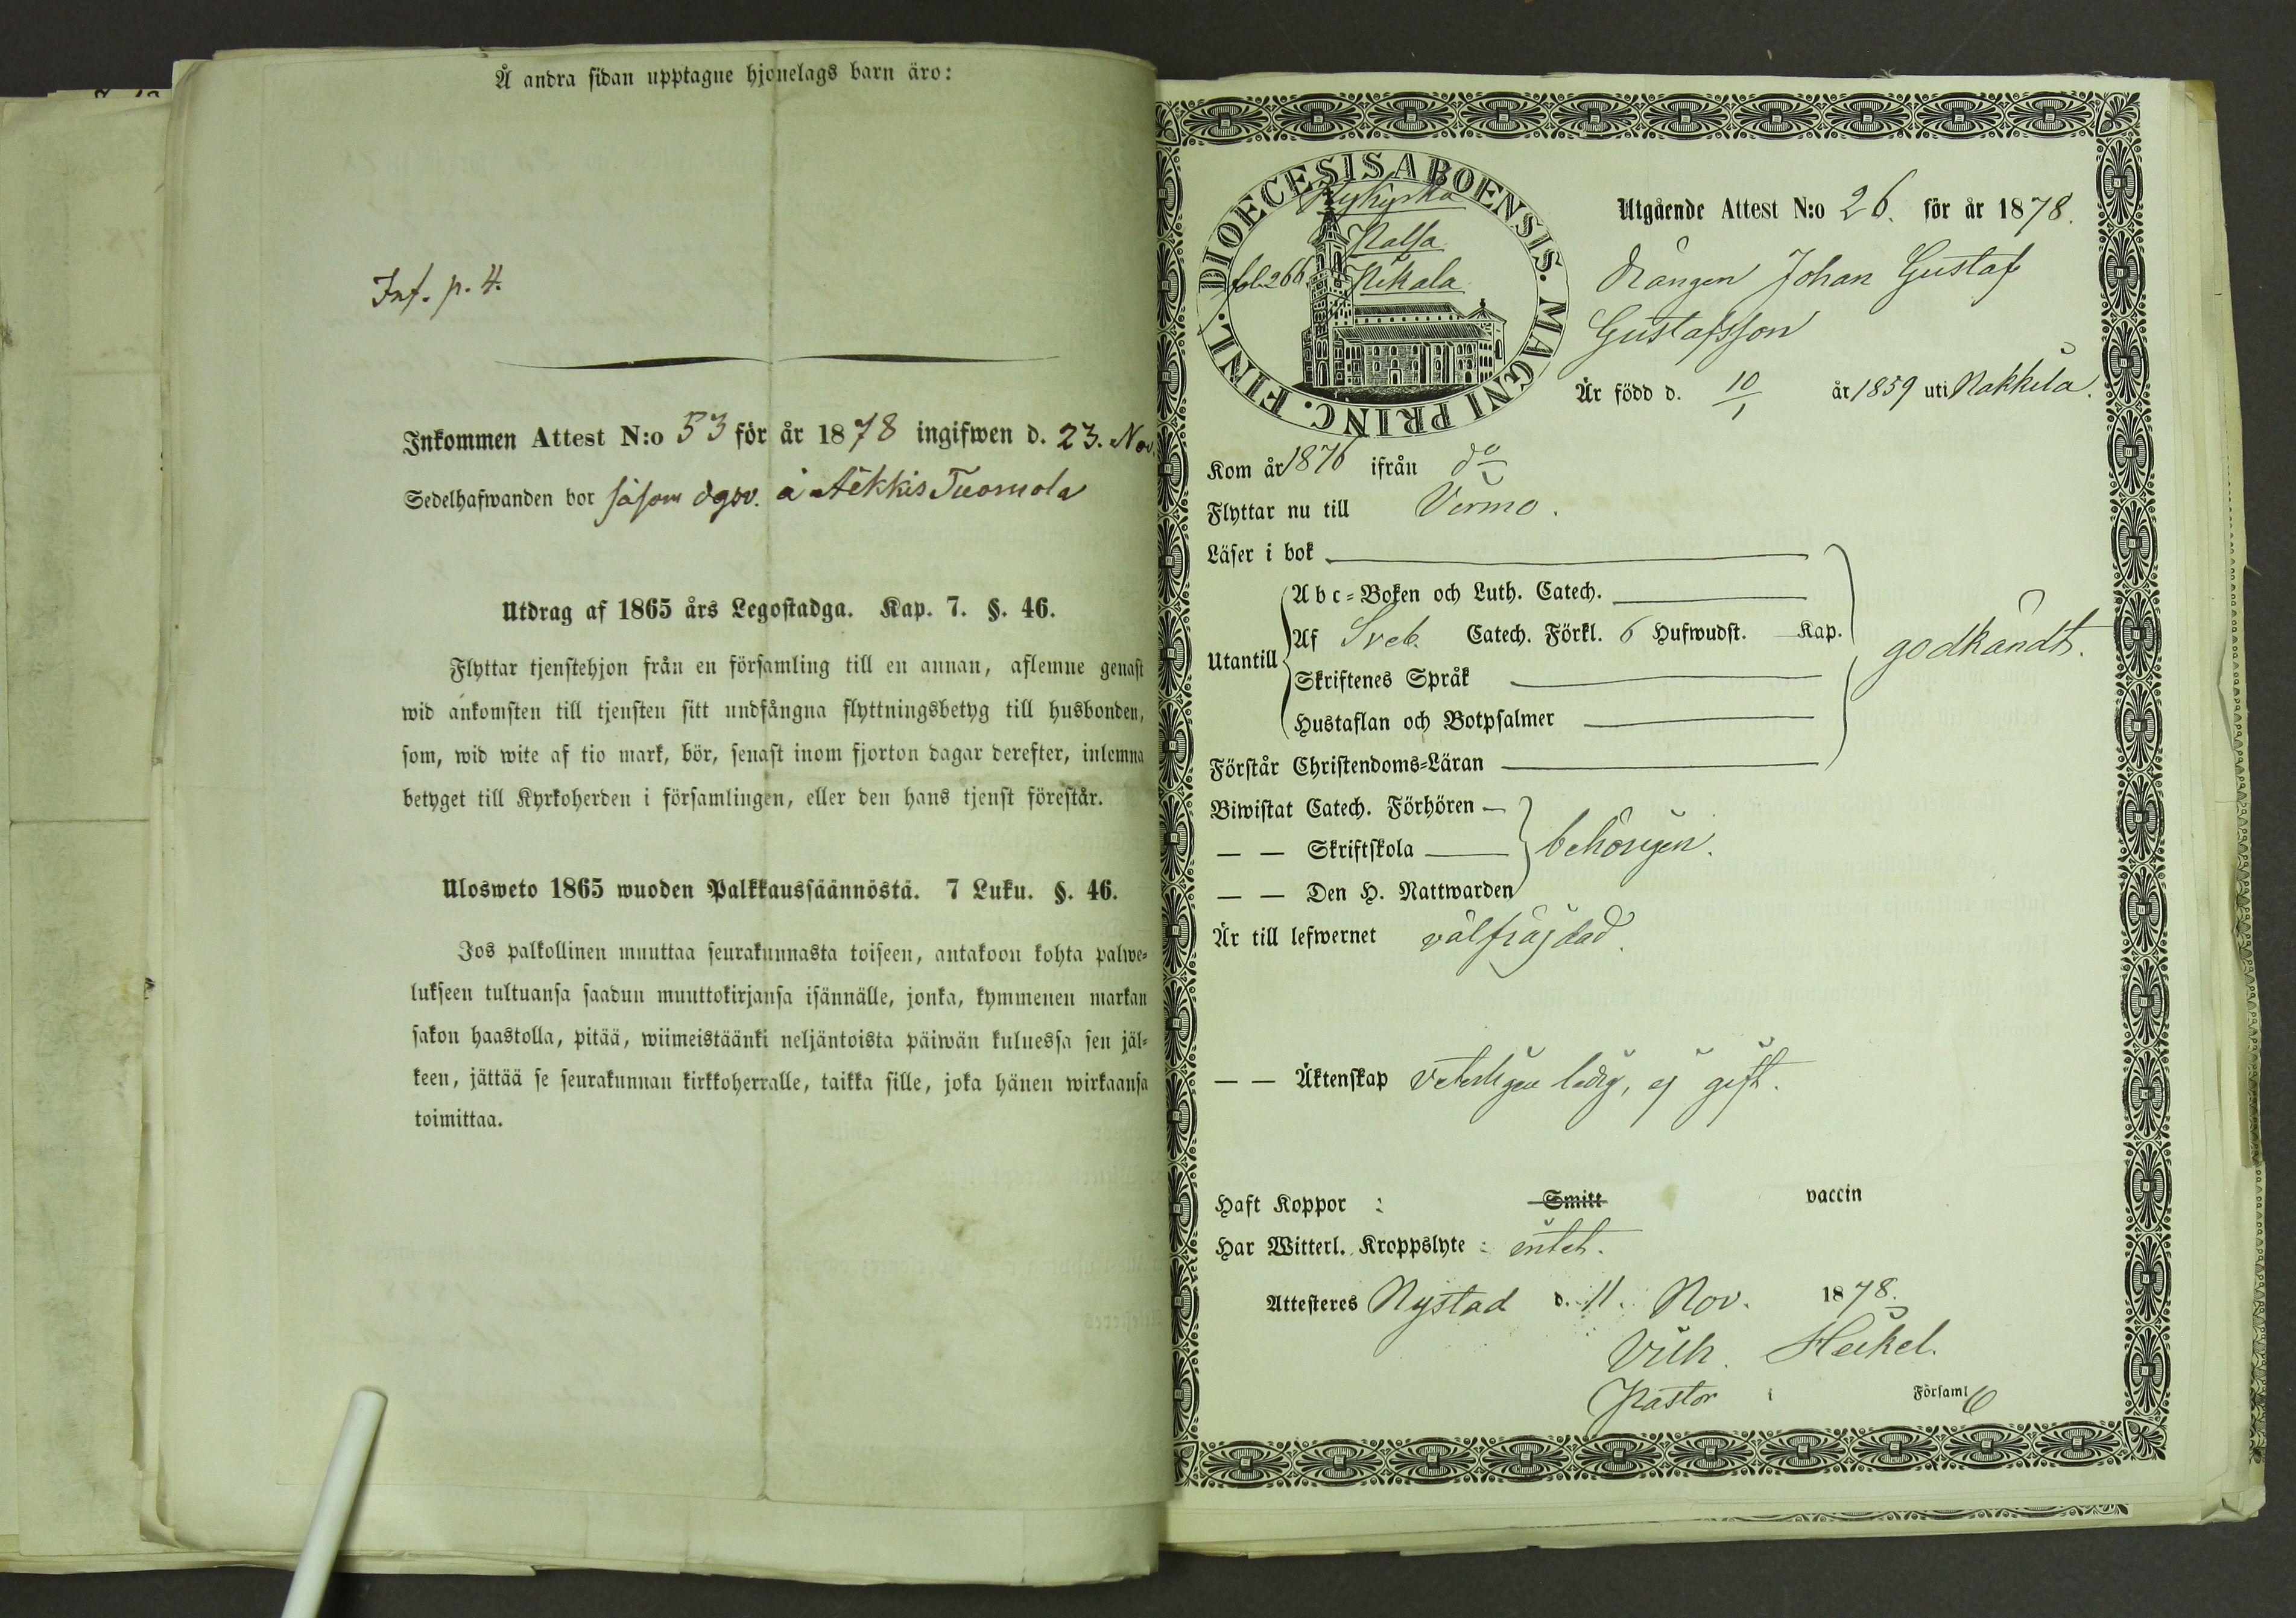 Å andra sidan upptagne hjonelags barn äro:
Inf. p. 4.
Inkommen Attest N:o 53 för år 1878 ingifwen d. 23. Nov.
Sedelhafwanden bor såsom dgsv. å Aekkis Tuomola
Utdrag af 1865 års Legostadga. Kap. 7. §. 46.
Flyttar tjenstehjon från en församling till en annan, aflemne genast
wid ankomsten till tjensten sitt undfångna flyttningsbetyg till husbonden,
som, wid wite af tio mark, bör, senast inom fjorton dagar derefter, inlemna
betyget till Kyrkoherden i församlingen, eller den hans tjenst förestår.
Ulosweto 1865 wuoden Palkkaussäännöstä. 7 Luku. §. 46.
Jos palkollinen muuttaa seurakunnasta toiseen, antakoon kohta palwe-
lukseen tultuansa saadun muuttokirjansa isännälle, jonka, kymmenen markan
sakon haastolla, pitää, wiimeistäänki neljäntoista päiwän kuluessa sen jäl-
keen, jättää se seurakunnan kirkkoherralle, taikka sille, joka hänen wirkaansa
toimittaa.
DIOECESIS ABOENSIS. MAGNI PRINC. FINL.
Nykyrko
Kalsa
fol. 266. Kukala
Utgående Attest N:o 26. för år 1878.
Drängen Johan Gustaf
Gustafsson
Är född d. 10/1 år 1859 uti Nakkila.
Kom år 1876 ifrån do
Flyttar nu till Virmo.
Läser i bok
Abc-Boken och Luth. Catech.
Utantill
Af Sveb. Catech. Förkl. 6 Hufwudst. Kap.
godkändt.
Skriftenes Språk
Hustaflan och Botpsalmer
Förstår Christendoms-Läran
Biwistat Catech. Förhören
— — Skriftskola behörigen.
— — Den H. Nattwarden
Är till lefwernet välfräjdad.
— — Äktenskap veterligen ledig, ej gift.
Haft Koppor : Smitt vaccin
Har Witterl. Kroppslyte : intet.
Attesteres Nystad d. 11. Nov. 1878.
Vilh. Heikel.
Pastor i Församl